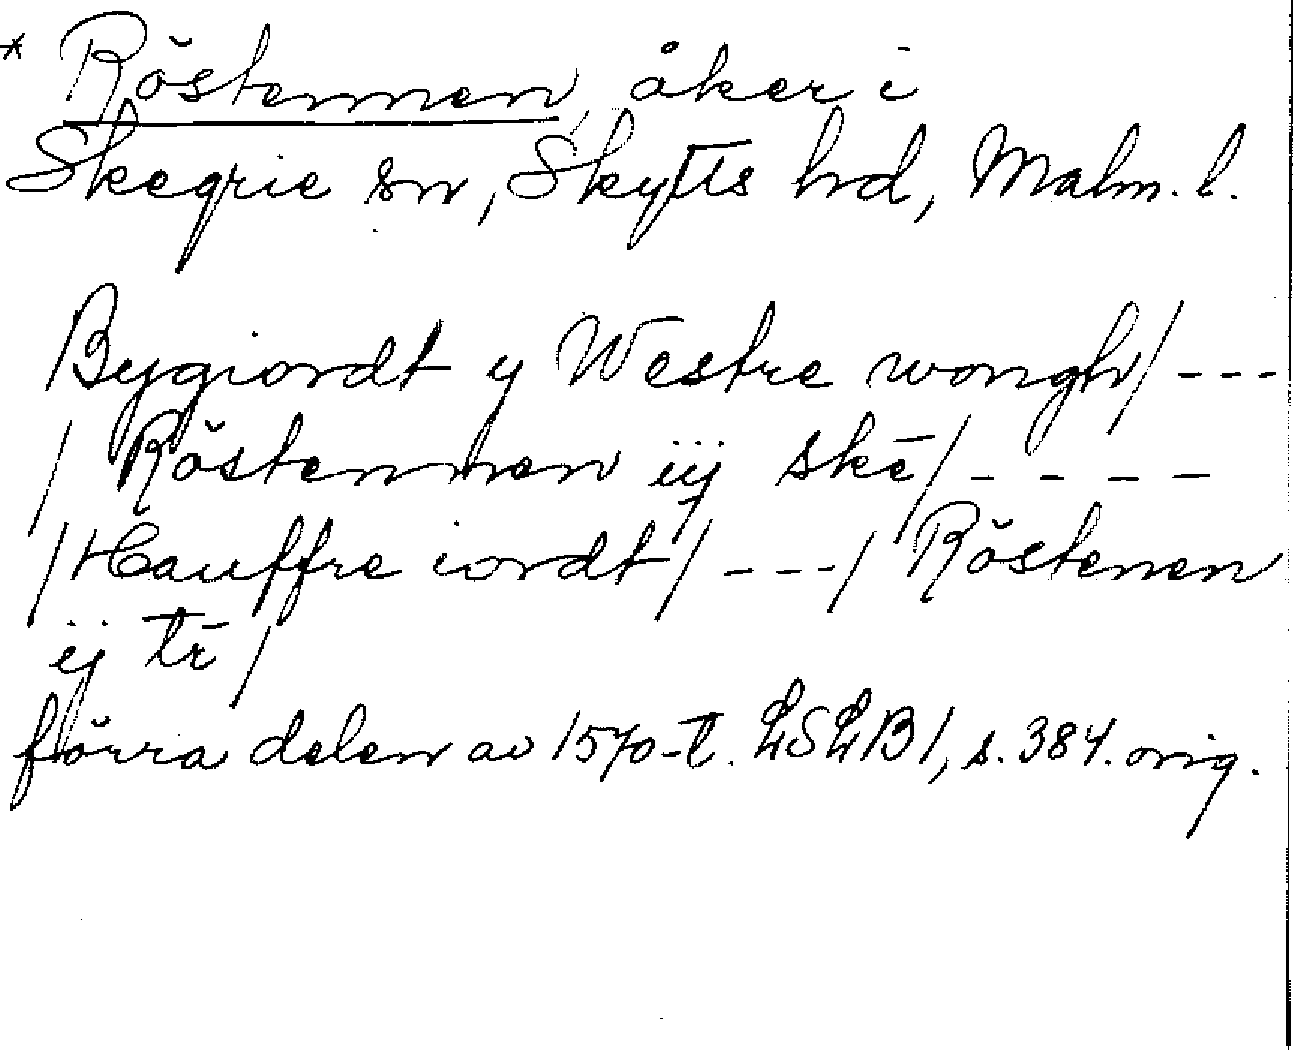 * Röstennen, åker i
Skegrie sn, Skytts hd, Malm. l.
Bygiordt y Westre wongh / - - -
/ Röstennen iij skē / - - - -
/ Hauffre iordt / - - - / Röstenen
ij tr̄ /
förra delen av 1570-t. LSLB 1, s. 384. orig.